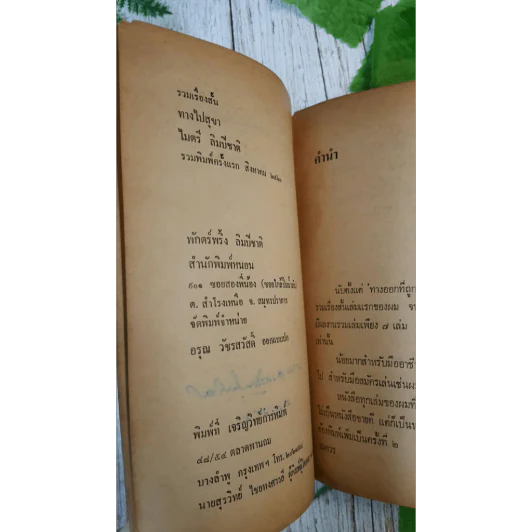 รวมเรื่องสั้น
ทางไปสุขา
ไมตรี ลิมปิชาติ
รวมพิมพ์ครั้งแรก สิงหาคม ๒๕๒๑
พักตร์พริ้ง ลิมปิชาติ
สำนักพิมพ์หนอน
๙๐๑ ซอยสองพี่น้อง
ต. สำโรงเหนือ จ. สมุทรปราการ
จัดพิมพ์จำหน่าย
อรุณ วัชรสวัสดิ์ ออกแบบปก
พิมพ์ที่ เจริญวิทย์การพิมพ์
๔๘/๕๔ ตลาดพานถม
บางลำพู กรุงเทพฯ โทร.
นายสุรวิทย์ ไชยพงศาวลี ผู้พิมพ์ผู้โฆษณา
คำนำ
นับตั้งแต่ "ทางออกที่ถูก
รวมเรื่องสั้นเล่มแรกของผม จา
มีผลงานรวมเล่มเพียง ๗ เล่ม
เท่านั้น
น้อยมากสำหรับมืออาชี
ไป สำหรับมือสมัครเล่นเช่นผม
หนังสือทุกเล่มของผมที่
ไม่เป็นหนังสือขายดี แต่ก็เป็นห
ต้องพิมพ์เพิ่มเป็นครั้งที่ ๒
สมควร